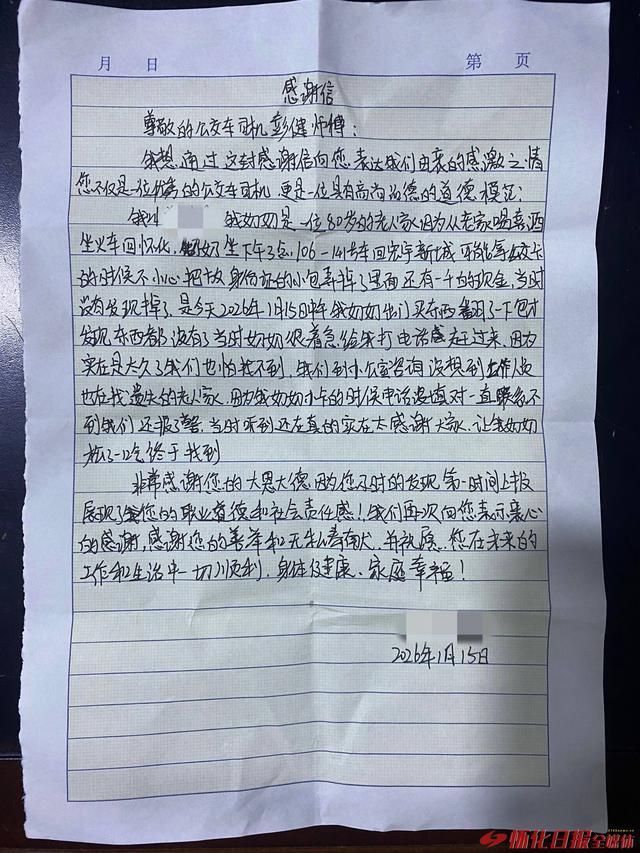 月 日 第 页
感谢信
尊敬的公交车司机彭健师傅：
我想通过这封感谢信向您表达我们由衷的感激之情
您不仅是一位优秀的公交车司机更是一位具有高尚品德的道德模范：
我叫 我奶奶是一位80岁的老人家因为从老家回
坐火车回怀化，坐下午3点，106-141号车回宏宇新城可能拿公交卡
的时候不小心把放身份证的小包弄掉了里面还有一千的现金，当时
没有发现掉了，是今天2026年1月15日中午我奶奶他们买东西翻了一下包才
发现东西都没有了当时奶奶很着急给我打电话感赶过来，因为
实在是太久了我们也怕找不到，我们到办公室咨询没想到工作人员
也在找遗失的老人家，因为我奶奶办卡的时候电话没填对一直联系不
到我们还报了警，当时听到还在真的实在太感谢大家，让我奶奶
松了一口气终于找到
非常感谢您的大恩大德因为您及时的发现第一时间上报
展现了您的职业道德和社会责任感！我们再次向您表示衷心
的感谢，感谢您的善举和无私奉献，并祝愿，您在未来的
工作和生活中一切顺利，身体健康、家庭幸福！
2026年1月15日
怀化日报全媒体